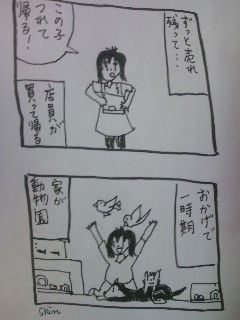 ずっと売れ
残って…
この子
つれて
帰る！
店員が
買って帰る
おかげで
一時期
家が
動物園
Shin